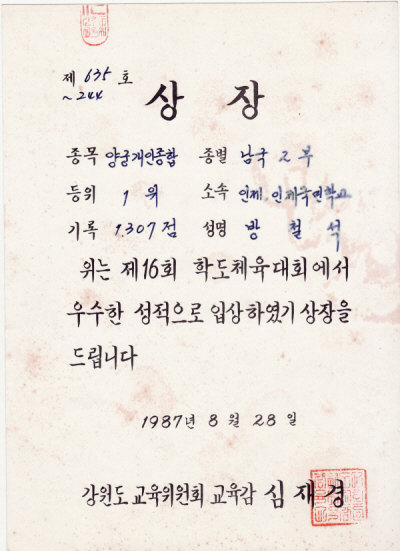 제 635 호
~244
상 장
종목 양궁개인종합 종별 남국 2 부
등위 1 위 소속 인제 인제국민학교
기록 1.307점 성명 방 철 석
위는 제16회 학도체육대회에서
우수한 성적으로 입상하였기 상장을
드립니다
1987년 8 월 28 일
강원도 교육위원회 교육감 심재경